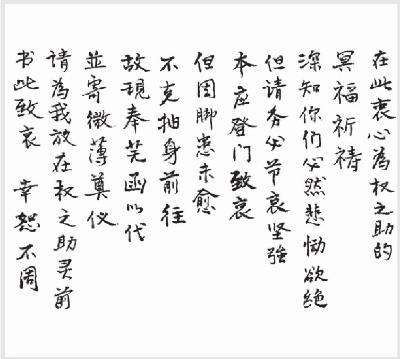 在此衷心为权之助的
冥福祈祷
深知你们必然悲恸欲绝
但请务必节哀坚强
本应登门致哀
但因脚患未愈
不克抽身前往
故现奉芜函以代
並寄微薄奠仪
请为我放在权之助灵前
书此致哀 幸恕不周